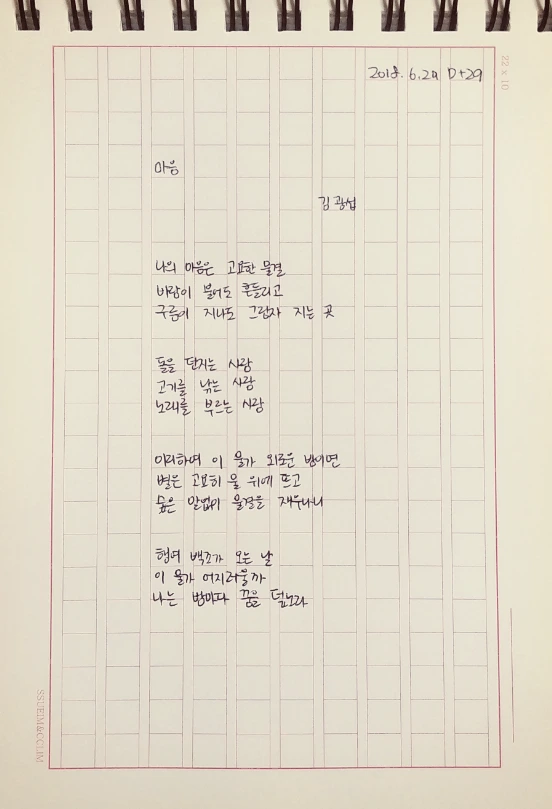 2018. 6. 29 D+29
22 x 10
마음
김광섭
나의 마음은 고요한 물결
바람이 불어도 흔들리고
구름이 지나도 그림자 지는 곳
돌을 던지는 사람
고기를 낚는 사람
노래를 부르는 사람
이리하여 이 물가 외로운 밤이면
별은 고요히 물 위에 뜨고
숲은 말없이 물결을 재우나니
행여 백조가 오는 날
이 물가 어지러울까
나는 밤마다 꿈을 덮노라